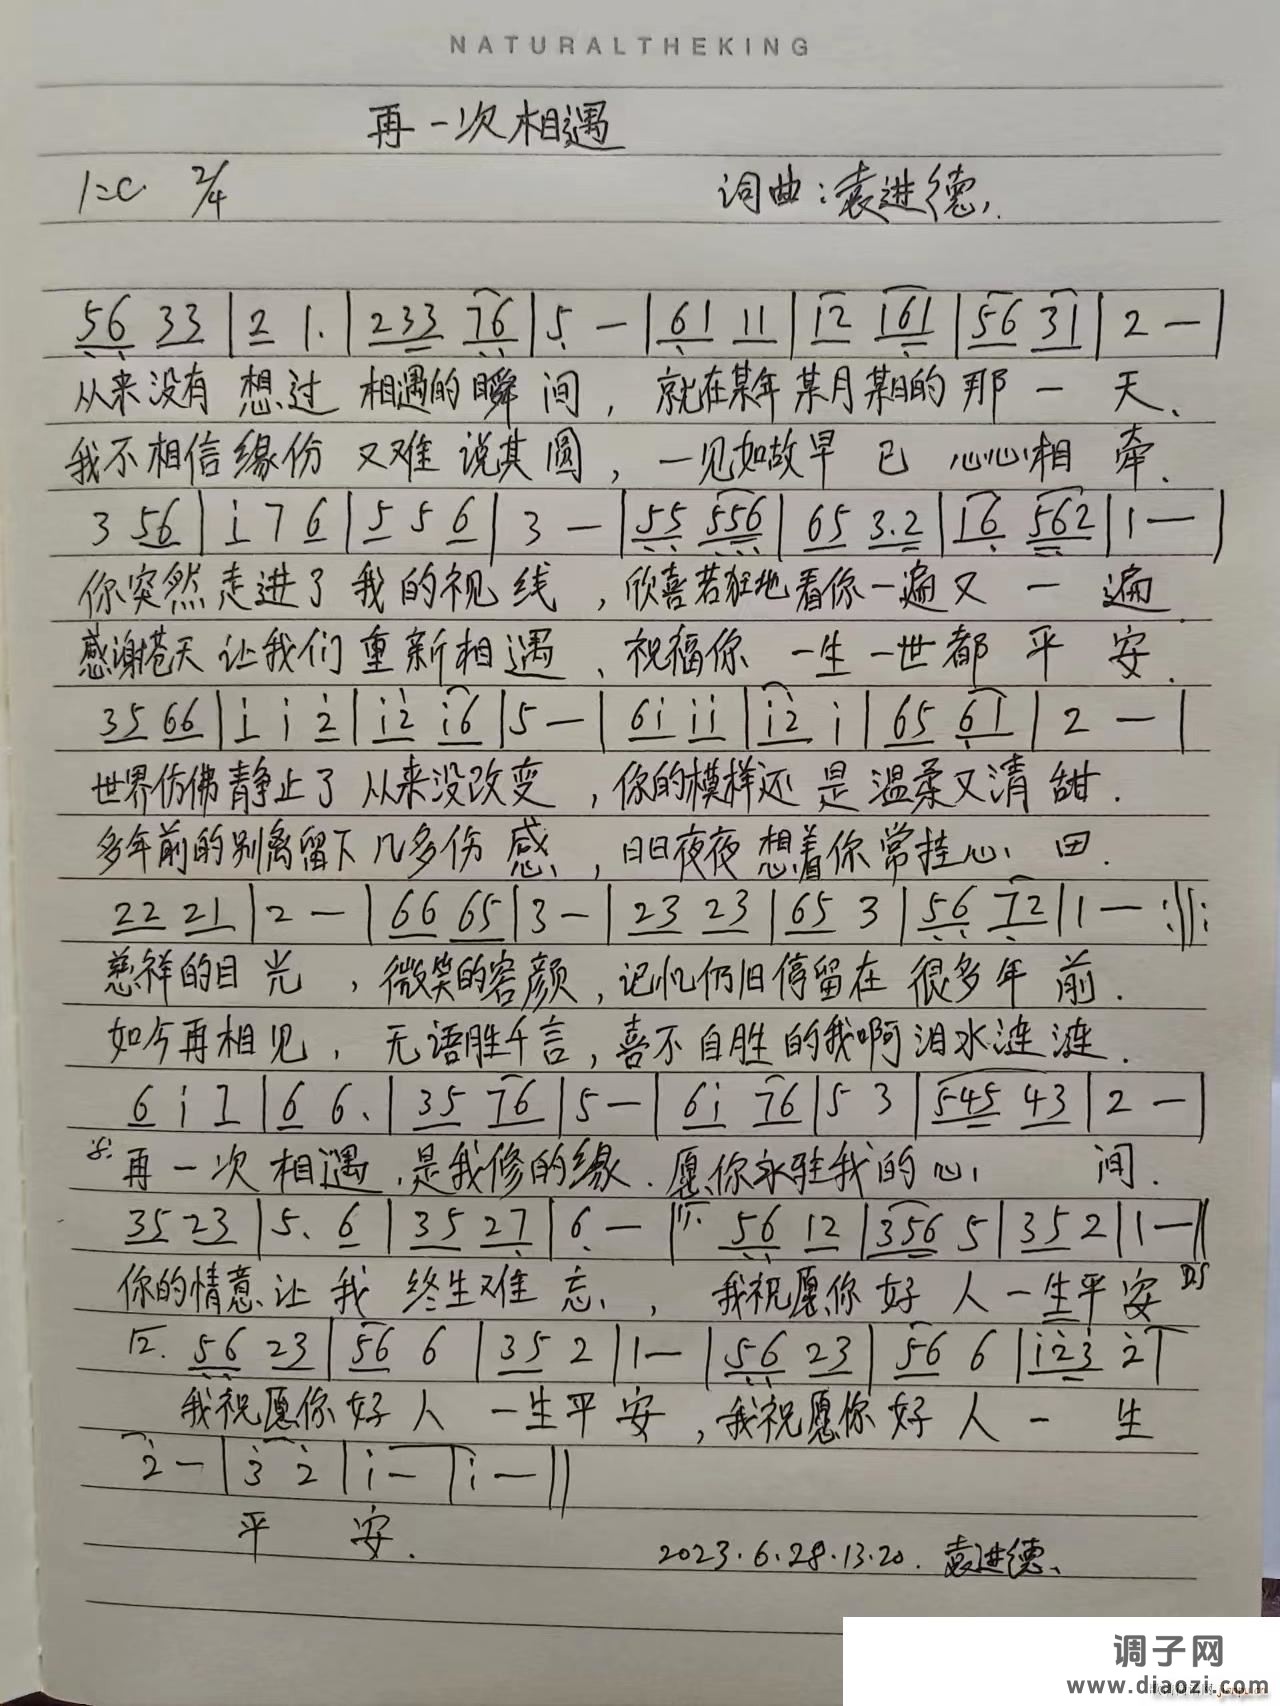 NATURALTHEKING
再一次相遇
1=C 2/4 词曲：袁进德
56 33 | 2 1. | 233 76 | 5 — | 61 11 | 12 161 | 56 31 | 2 — |
从来没有 想过 相遇的瞬间，就在某年某月某日的那一天、
我不相信缘份又难说其圆，一见如故早已心心相牵.
3 56 | i 7 6 | 5 5 6 | 3 — | 55 556 | 65 3.2 | 16 562 | 1 — |
你突然走进了我的视线，欣喜若狂地看你一遍又一遍.
感谢苍天让我们重新相遇、祝福你一生一世都平安.
35 66 | i i 2 | i2 i6 | 5 — | 6i ii | i2 i | 65 61 | 2 — |
世界仿佛静止了从来没改变，你的模样还是温柔又清甜.
多年前的别离留下几多伤感、，日日夜夜想着你常挂心田.
22 21 | 2 — | 66 65 | 3 — | 23 23 | 65 3 | 56 72 | 1 — :||:
慈祥的目光，微笑的容颜，记忆仍旧停留在很多年前.
如今再相见，无语胜千言，喜不自胜的我啊泪水涟涟.
6 i 7 | 6 6. | 35 76 | 5 — | 6i 76 | 5 3 | 545 43 | 2 — |
再一次相遇，是我修的缘.愿你永驻我的心间.
35 23 | 5. 6 | 35 27 | 6 — | 1. 56 12 | 356 5 | 35 2 | 1 — ||
你的情意让我终生难忘、，我祝愿你好人一生平安 DS
2. 56 23 | 56 6 | 35 2 | 1 — | 56 23 | 56 6 | i23 2 |
我祝愿你好人一生平安，我祝愿你好人一生
2 — | 3 2 | i — | i — ||
平安.
2023.6.28.13.20. 袁进德、
调子网
www.diaozi.com